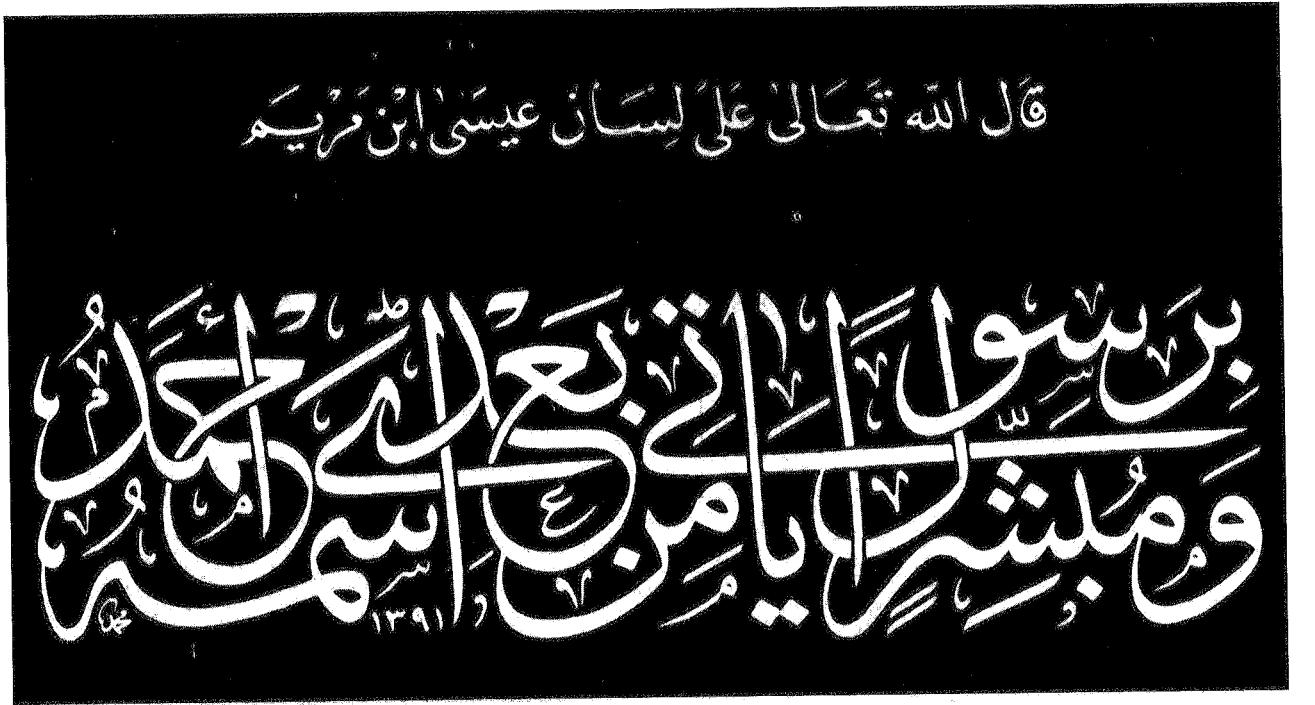 قَالَ اللّٰه تَعَالىٰ عَلىٰ لِسَان عيسَىٰ ابْن مَرْيَم
وَمُبَشِّرًا بِرَسُولٍ يَأْتِي مِنْ بَعْدِي اسْمُهُ أَحْمَدُ
١٣٩١
محمد